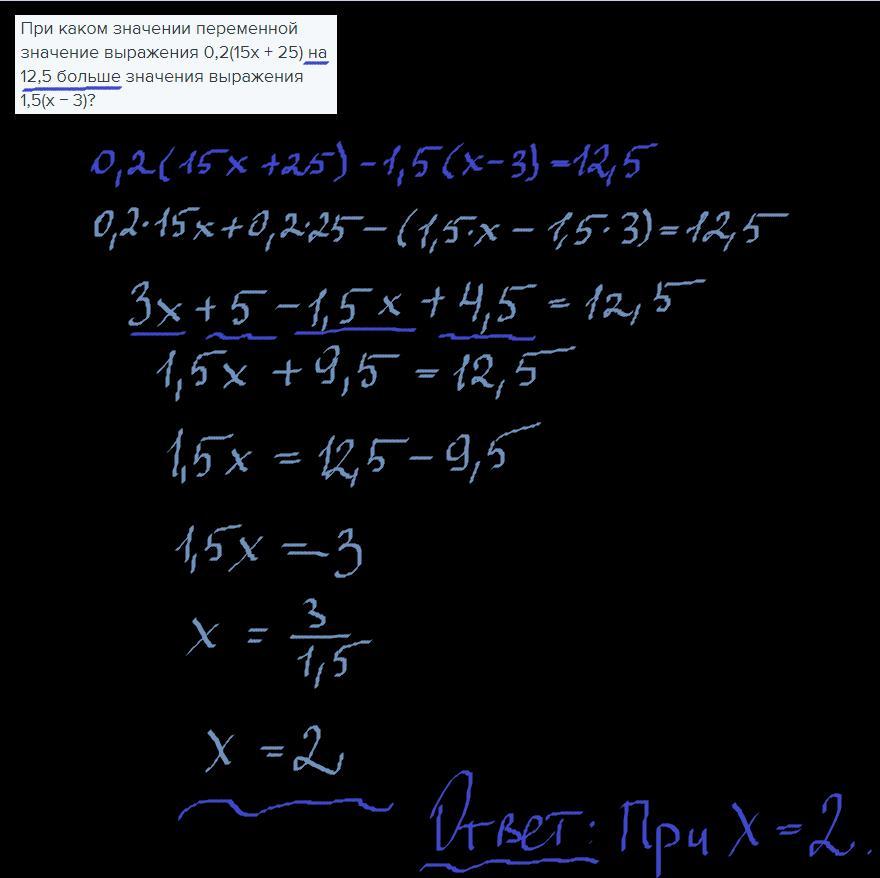 При каком значении переменной
значение выражения 0,2(15x + 25) на
12,5 больше значения выражения
1,5(x − 3)?
0,2(15x+25)-1,5(x-3)=12,5
0,2·15x+0,2·25-(1,5·x-1,5·3)=12,5
3x+5-1,5x+4,5=12,5
1,5x+9,5=12,5
1,5x=12,5-9,5
1,5x=3
x = 3/1,5
x=2
Ответ: При x=2.